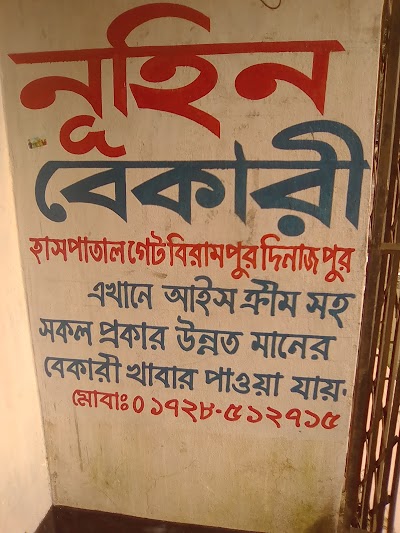 নূহিন
বেকারী
হাসপাতাল গেট বিরামপুর দিনাজপুর
এখানে আইস ক্রীম সহ
সকল প্রকার উন্নত মানের
বেকারী খাবার পাওয়া যায়.
মোবাঃ 0 ১৭২৮-৫১২৭১৫